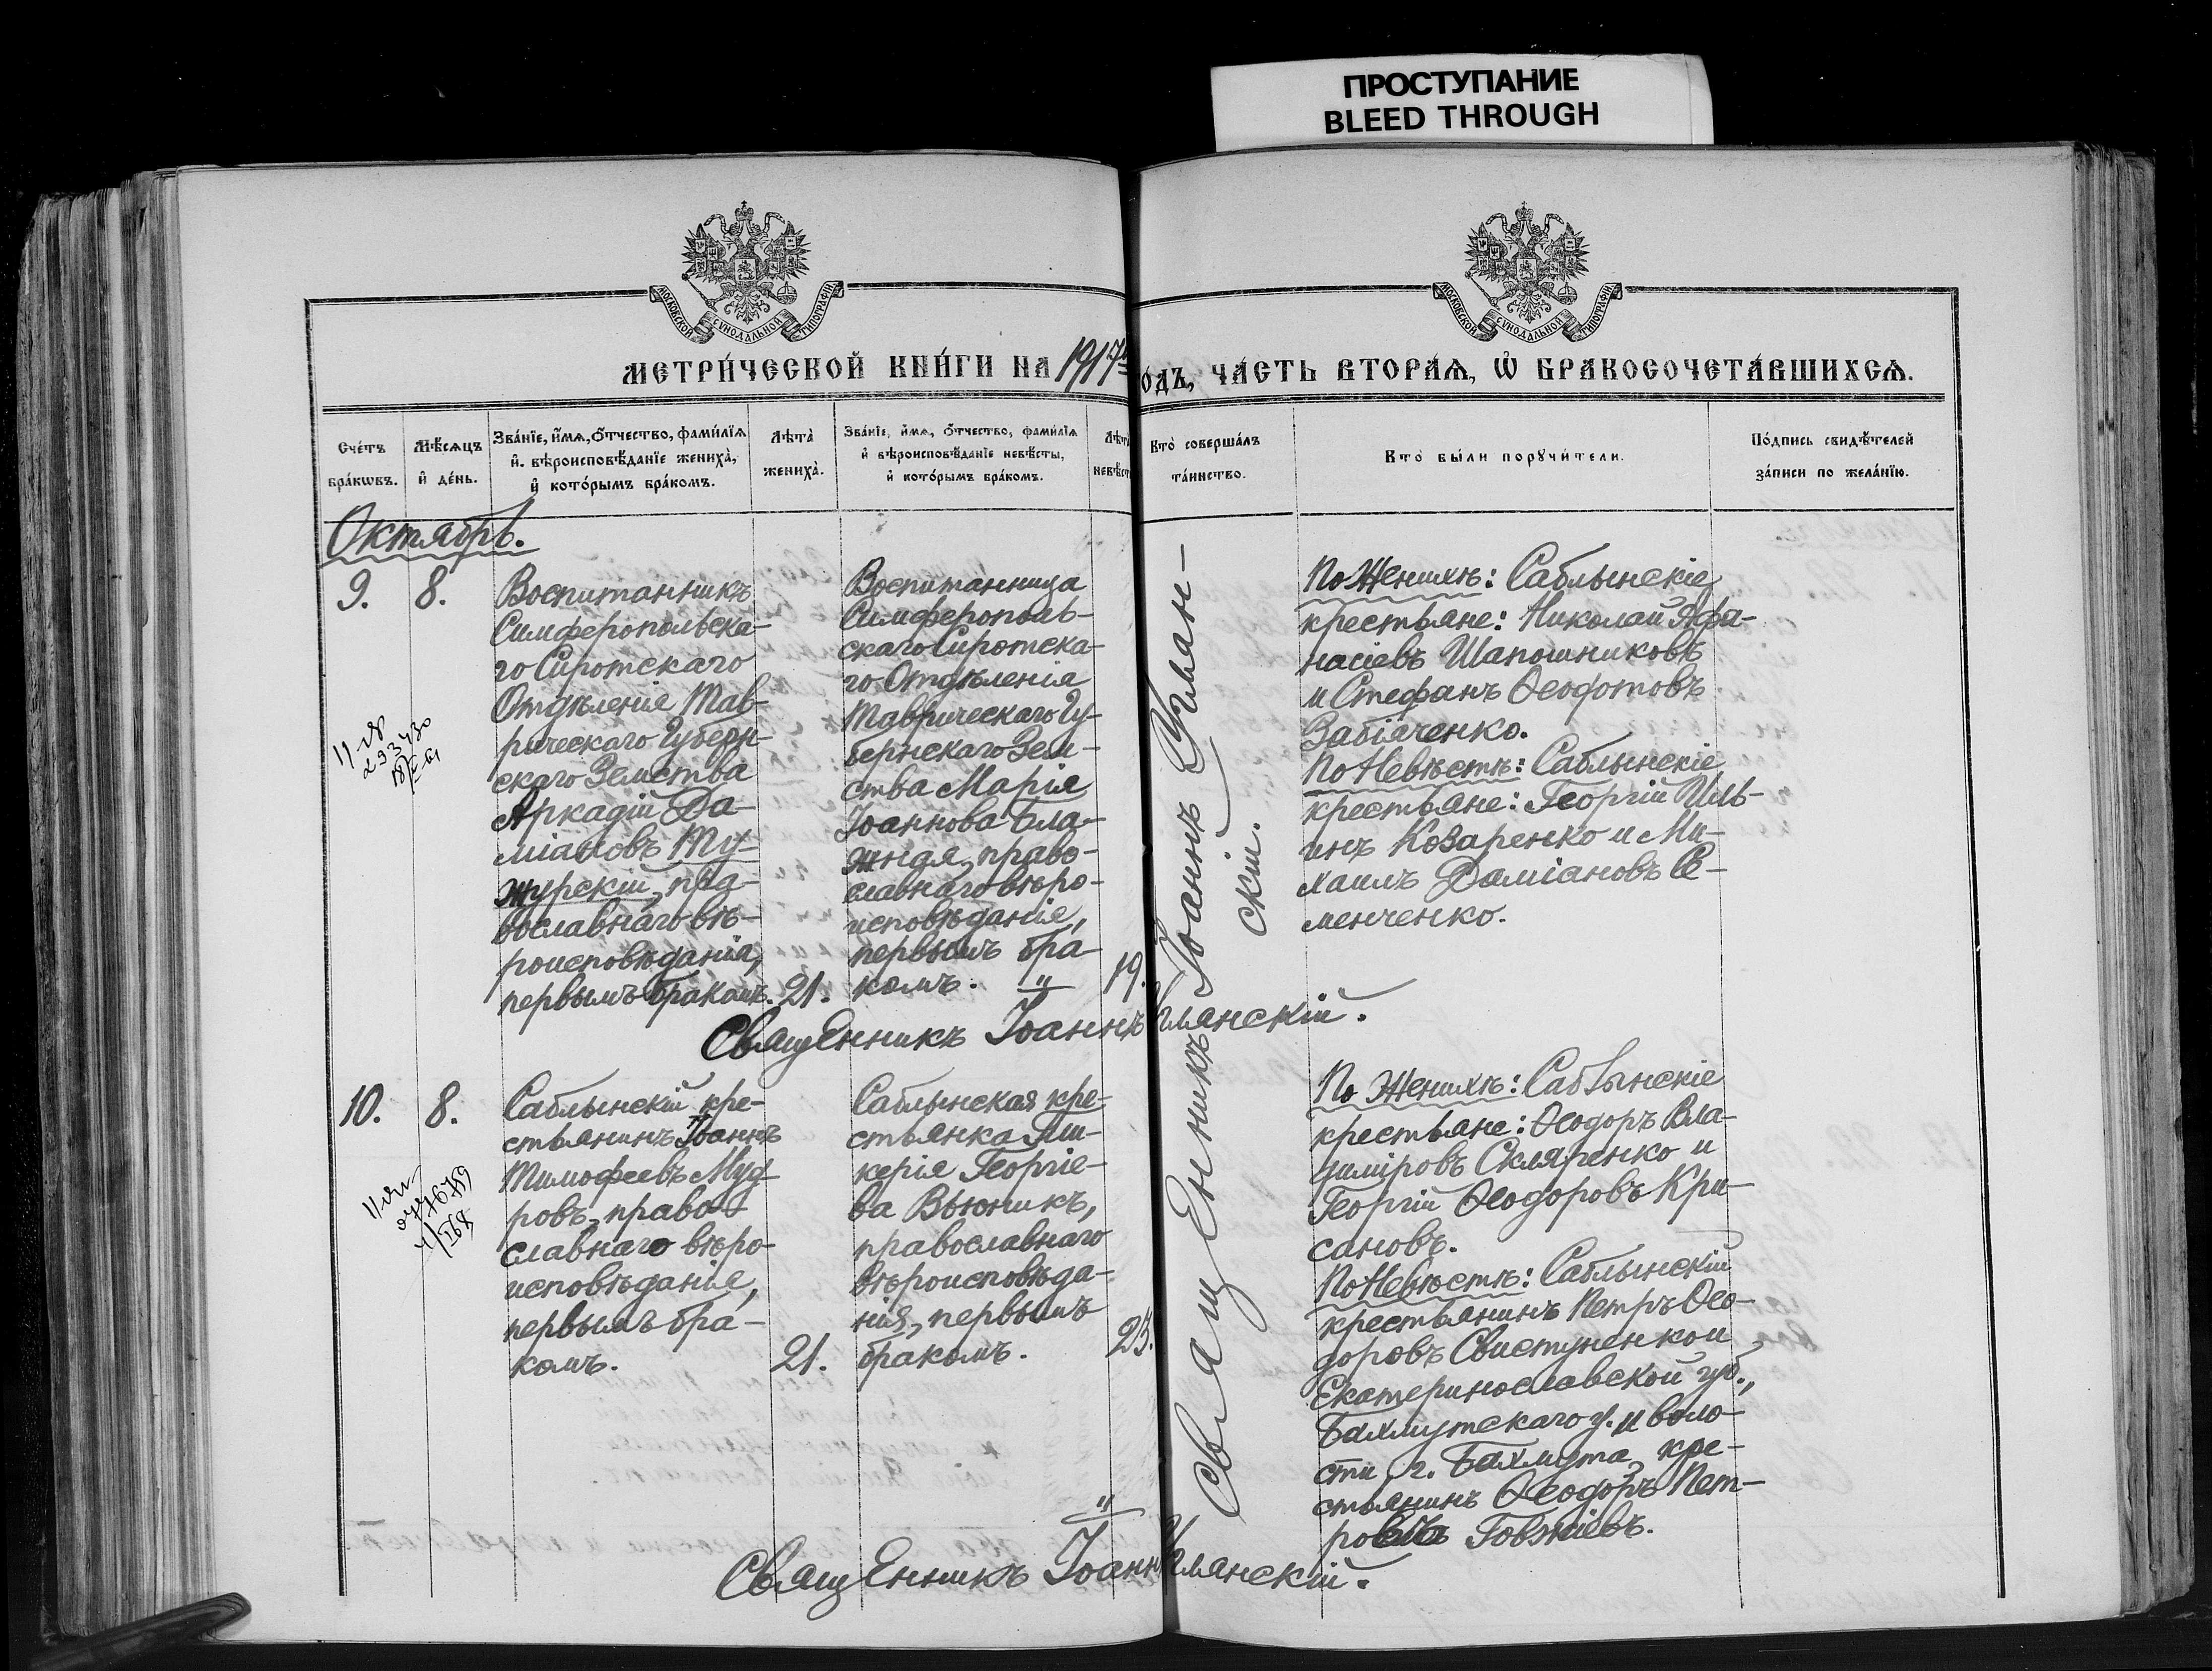 ПРОСТУПАНИЕ
BLEED THROUGH
МОСКОВСКОЙ СУНОДАЛЬНОЙ ТИПОГРАФІИ
МОСКОВСКОЙ СУНОДАЛЬНОЙ ТИПОГРАФІИ
МЕТРИ́ЧЕСКОЙ КНИ́ГИ НА 1917
ОДЪ, ЧА́СТЬ ВТОРА́Ѧ, Ѡ҆ БРАКОСОЧЕТА́ВШИХСѦ.
Сче́тъ
бра́кѡвъ.
Мѣ́сѧцъ
и҆ де́нь.
Зва́нїе, и҆́мѧ, ѻ҆́тчество, фами́лїѧ
и҆ вѣроисповѣ́данїе жениха̀,
и҆ кото́рымъ бра́комъ.
Лѣта̀
жениха̀.
Зва́нїе, и҆́мѧ, ѻ҆́тчество, фами́лїѧ
и҆ вѣроисповѣ́данїе невѣ́сты,
и҆ кото́рымъ бра́комъ.
Лѣта
невѣст
Кто̀ соверша́лъ
та́инство.
Кто̀ бы́ли порꙋчи́тели.
По́дпись свидѣ́телей
за́писи по жела́нїю.
Октябрь.
9.
8.
Воспитанникъ
Симферопольска-
го Сиротскаго
Отдѣленія Тав-
рическаго Губерн-
скаго Земства
Аркадій Да-
міановъ Ту-
журскій, пра-
вославнаго вѣ-
роисповѣданія,
первымъ бракомъ.
21.
Воспитанница
Симферополь-
скаго Сиротска-
го Отдѣленія
Таврическаго Гу-
бернскаго Зем-
ства Марія
Іоаннова Бла-
жная, право-
славнаго вѣро-
исповѣданія,
первымъ бра-
комъ. "
19.
Священникъ Іоаннъ Уман-
скій.
По Женихѣ: Саблынскіе
крестьяне: Николай Афа-
насіевъ Шапошниковъ
и Стефанъ Ѳеодотовъ
Забіаченко.
По Невѣстѣ: Саблынскіе
крестьяне: Георгій Иль-
инъ Козаренко и Ми-
хаилъ Даміановъ Се-
менченко.
Священникъ Іоаннъ Уманскій.
10.
8.
Саблынскій кре-
стьянинъ Іоаннъ
Тимофеевъ Муд-
ровъ, право-
славнаго вѣро-
исповѣданія,
первымъ бра-
комъ.
21.
Саблынская кре-
стьянка Гли-
керія Георгіе-
ва Вьюникъ,
православнаго
вѣроисповѣда-
нія, первымъ
бракомъ.
"
По Женихѣ: Саблынскіе
крестьяне: Ѳеодоръ Вла-
диміровъ Скляренко и
Георгій Ѳеодоровъ Кри-
сановъ.
По Невѣстѣ: Саблынскій
крестьянинъ Петръ Ѳео-
доровъ Свистуненко и
Екатеринославской губ.,
Бахмутскаго у. и воло-
сти, г. Бахмута, кре-
стьянинъ Ѳеодоръ Пет-
Священникъ Іоаннъ Уманскій.